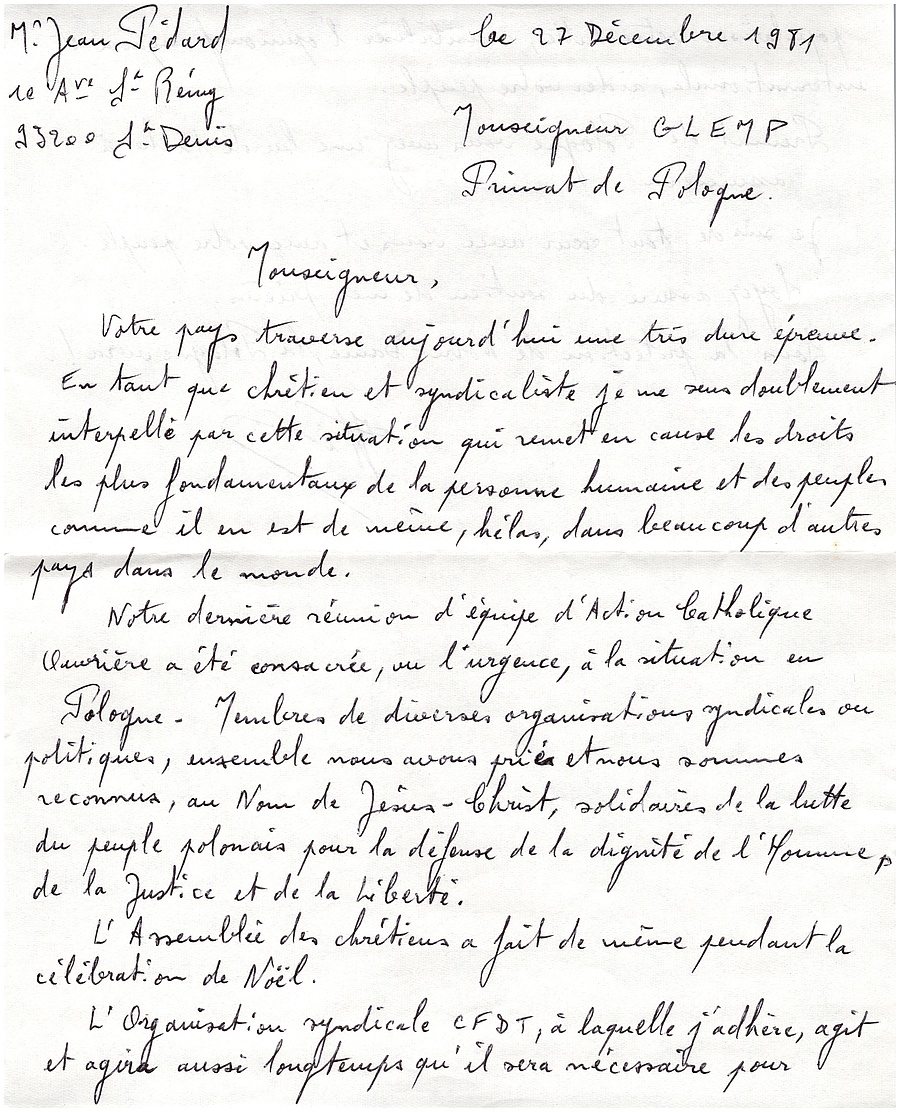 Mr Jean Pédard
10 Ave St Rémy
93200 St Denis
Le 27 Décembre 1981
Monseigneur GLEMP
Primat de Pologne.
Monseigneur,
Votre pays traverse aujourd'hui une très dure épreuve.
En tant que chrétien et syndicaliste je me sens doublement
interpellé par cette situation qui remet en cause les droits
les plus fondamentaux de la personne humaine et des peuples
comme il en est de même, hélas, dans beaucoup d'autres
pays dans le monde.
Notre dernière réunion d'équipe d'Action Catholique
Ouvrière a été consacrée, vu l'urgence, à la situation en
Pologne - Membres de diverses organisations syndicales ou
politiques, ensemble nous avons prié et nous sommes
reconnus, au Nom de Jésus-Christ, solidaires de la lutte
du peuple polonais pour la défense de la dignité de l'Homme,
de la Justice et de la Liberté.
L'Assemblée des chrétiens a fait de même pendant la
célébration de Noël.
L'Organisation syndicale CFDT, à laquelle j'adhère, agit
et agira aussi longtemps qu'il sera nécessaire pour